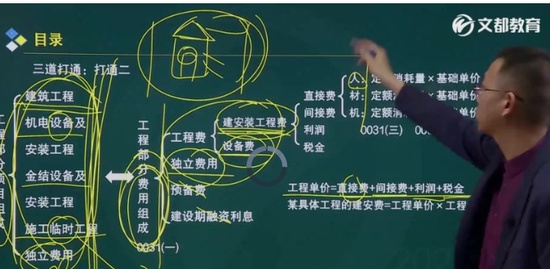 目录
文都教育
三道打通：打通二
建筑工程
机电设备及
安装工程
金结设备及
安装工程
施工临时工程
独立费用
工程部分费用组成
0031(一)
工程费
独立费用
预备费
建设期融资利息
建安装工程费
设备费
直接费
间接费
利润
税金
人：定 消耗量×基础单价
材：定额 耗量×基础单价
机：定额消 ×基础单价
0031(三)
工程单价=直接费+间接费+利润+税金
某具体工程的建安费=工程单价×工程